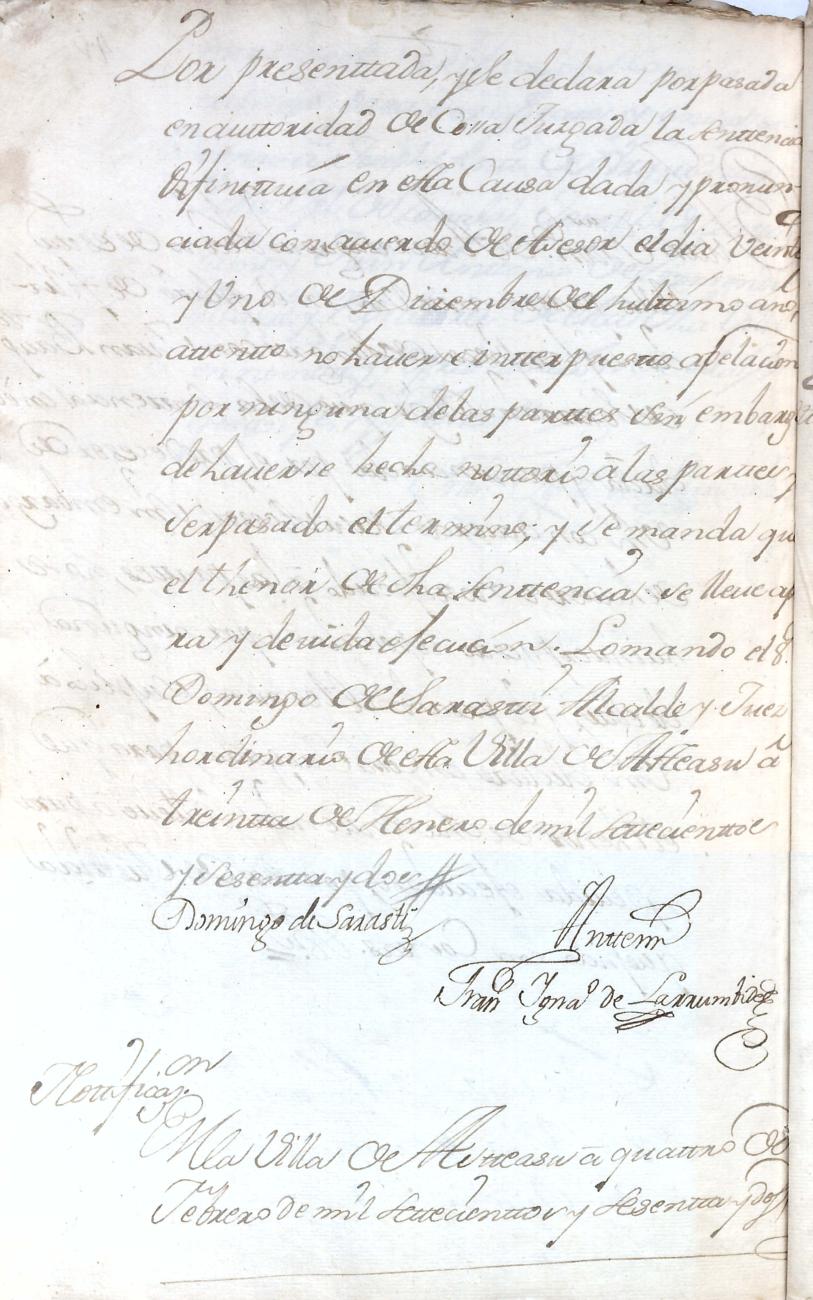 Por presenttada, y Se declara por pasada
en auttoridad de Cosa Jurgada la Senttencia
difinittiva en esta Causa dada y pronun
ciada con aquerdo de Asesor el dia Veinte
y Uno de Diciembre del hulttimo año,
attentto no haverse intterpuestto apelacion
por ninguna de las parttes Sin embargo
de haverse hecho nottorio â las parttes, y
Ser pasado el termino; y Se manda que
el thenor de dha Senttencia se lleve a pu
ra y devida esecucion. Lo mando el Sr.
Domingo de Sarasti Alcalde y Juez
hordinario de esta Villa de Atteasu â
treintta de Henero de mil Settecienttos
y Sesentta y dos
Domingo de Sarasti
Anttemi
Franco Ignao de Larrumbide
Nottificaon
En la Villa de Atteasu â quattro de
Febrero de mil Settecienttos y Sesentta y dos